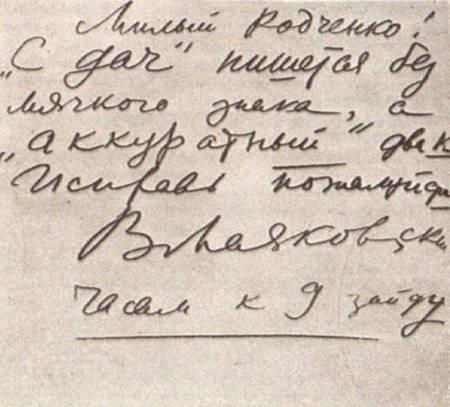 Милый Родченко!
„С дач" пишется без
мягкого знака, а
„аккуратный" два к
Исправь пожалуйста
ВМаяковский
часам к 9 зайду